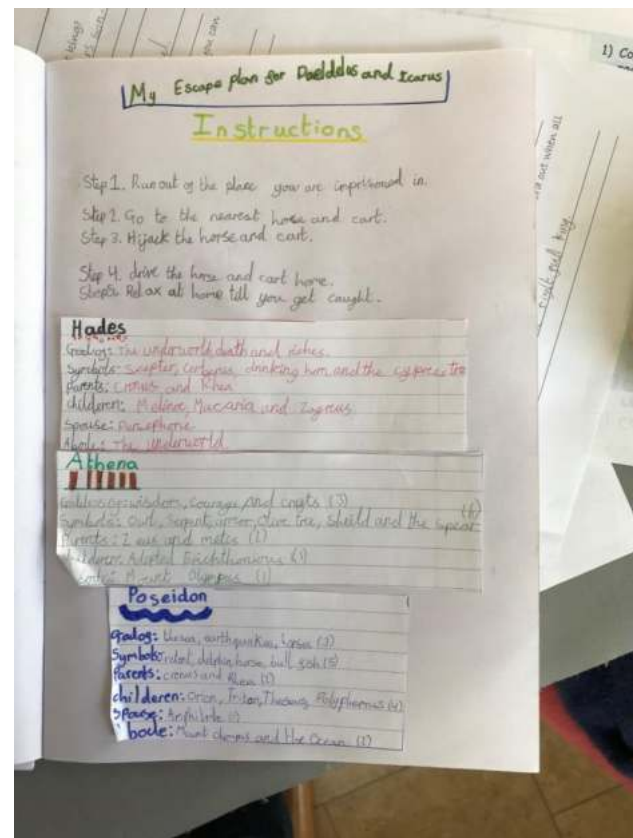 My Escape plan for Daeldelus and Icarus
Instructions
Step 1. Run out of the place you are imprisoned in.
Step 2. Go to the nearest horse and cart.
Step 3. Hijack the horse and cart.
Step 4. drive the horse and cart home.
Step 5. Relax at home till you get caught.
Hades
God of: The underworld, death and riches.
Symbols: Scepter, cerberus, drinking horn and the cypress tre
Parents: Cronus and Rhea
childeren: Melinoe, Macaria and Zagreus
Spouse: Persephone
Abode: The underworld
Athena
wisdom, courage and crafts (3)
Symbols: Owl, Serpent, armor, Olive tree, sheild and the spear (6)
Parents: Zeus and metis (1)
childeren: Adopted Erichthonious (1)
Mount Olympus (1)
Poseidon
godog: the sea, earthquakes, horses (3)
Symbols: dolphin, horse, bull, fish (5)
Parents: cronus and Rhea (1)
childeren: Orion, Triton, Theseus, Polyphemus (4)
Spouse: Amphitrite (1)
bode: Mount olympus and the Ocean (1)
1) Co
out when all
right and
you can